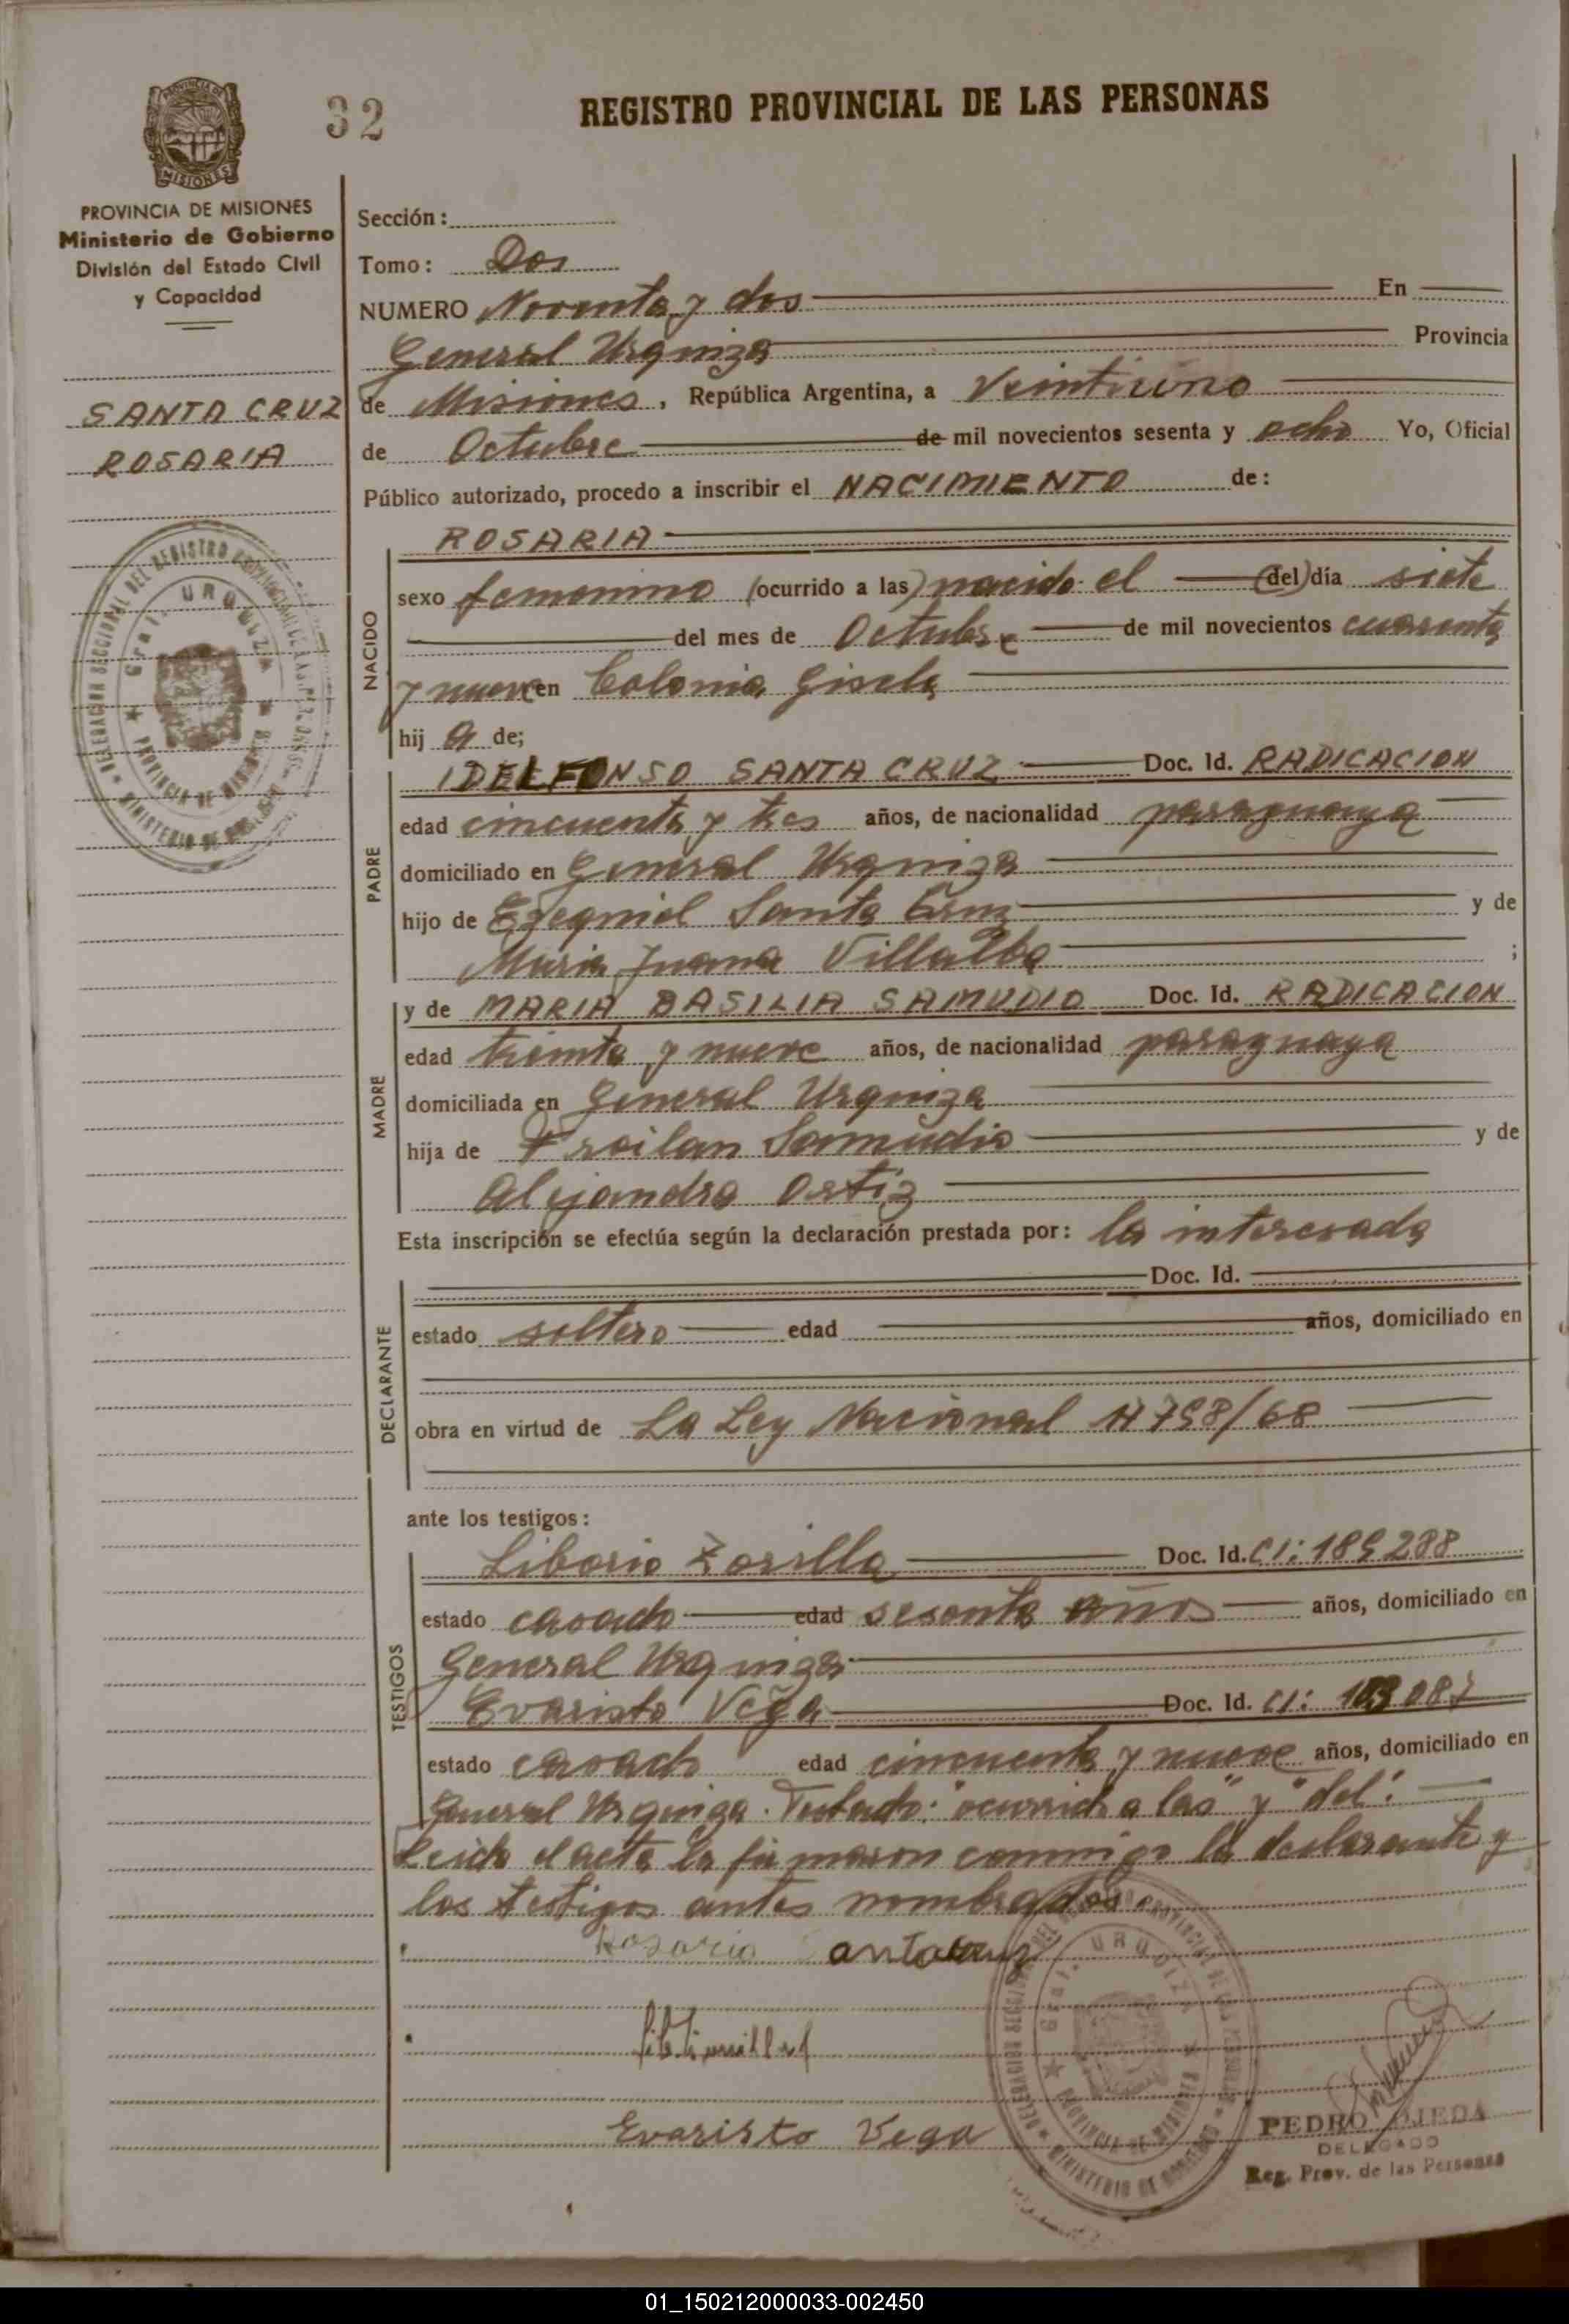 32
REGISTRO PROVINCIAL DE LAS PERSONAS
PROVINCIA DE MISIONES
Ministerio de Gobierno
División del Estado Civil
y Capacidad
SANTA CRUZ
ROSARIA
Sección:
Tomo: Dos
NUMERO Noventa y dos En
General Urquiza Provincia
de Misiones, República Argentina, a Veintiuno
de Octubre de mil novecientos sesenta y ocho Yo, Oficial
Público autorizado, procedo a inscribir el NACIMIENTO de:
ROSARIA
NACIDO
sexo femenino (ocurrido a las) nacido el (del) día siete
del mes de Octubre de mil novecientos cuarenta
y nueve en Colonia Gisela
hij a de;
PADRE
IDELFONSO SANTA CRUZ Doc. Id. RADICACION
edad cincuenta y tres años, de nacionalidad paraguaya
domiciliado en General Urquiza
hijo de Ezequiel Santa Cruz y de
Maria Juana Villalba ;
MADRE
y de MARIA BASILIA SAMUDIO Doc. Id. RADICACION
edad treinta y nueve años, de nacionalidad paraguaya
domiciliada en General Urquiza
hija de Froilan Samudio y de
Alejandra Ortiz
Esta inscripción se efectúa según la declaración prestada por: la interesada
DECLARANTE
Doc. Id.
estado soltero edad años, domiciliado en
obra en virtud de La Ley Nacional 17798/68
ante los testigos:
TESTIGOS
Liborio Zorilla Doc. Id. CI: 189288
estado casado edad sesenta años años, domiciliado en
General Urquiza
Evaristo Vega Doc. Id. CI:
estado casado edad cincuenta y nueve años, domiciliado en
General Urquiza. Testado: "ocurrido a las" y "del".
Leido el acta la firmaron conmigo la declarante y
los testigos antes nombrados.
Rosario antacruz
Evaristo Vega
PEDRO OJEDA
DELEGADO
Reg. Prov. de las Personas
01_150212000033-002450